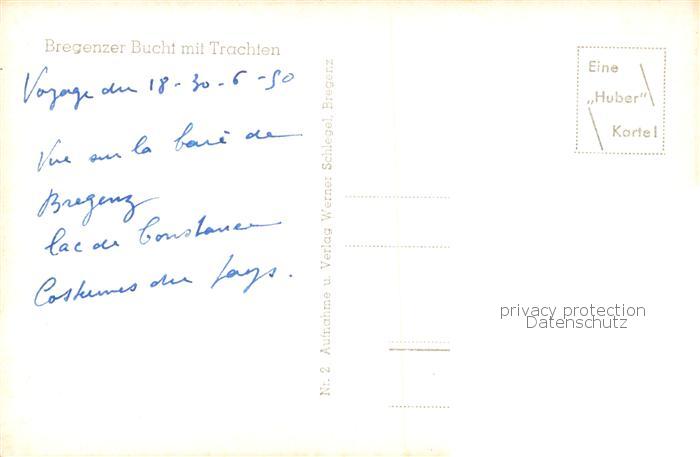 Bregenzer Bucht mit Trachten
Voyage du 18-30-6-50
Vue sur la baie de
Bregenz
lac de Constance
Costumes du pays.
Nr. 2 Aufnahme u. Verlag Werner Schlegel, Bregenz
Eine
„Huber"
Karte!
privacy protection
Datenschutz